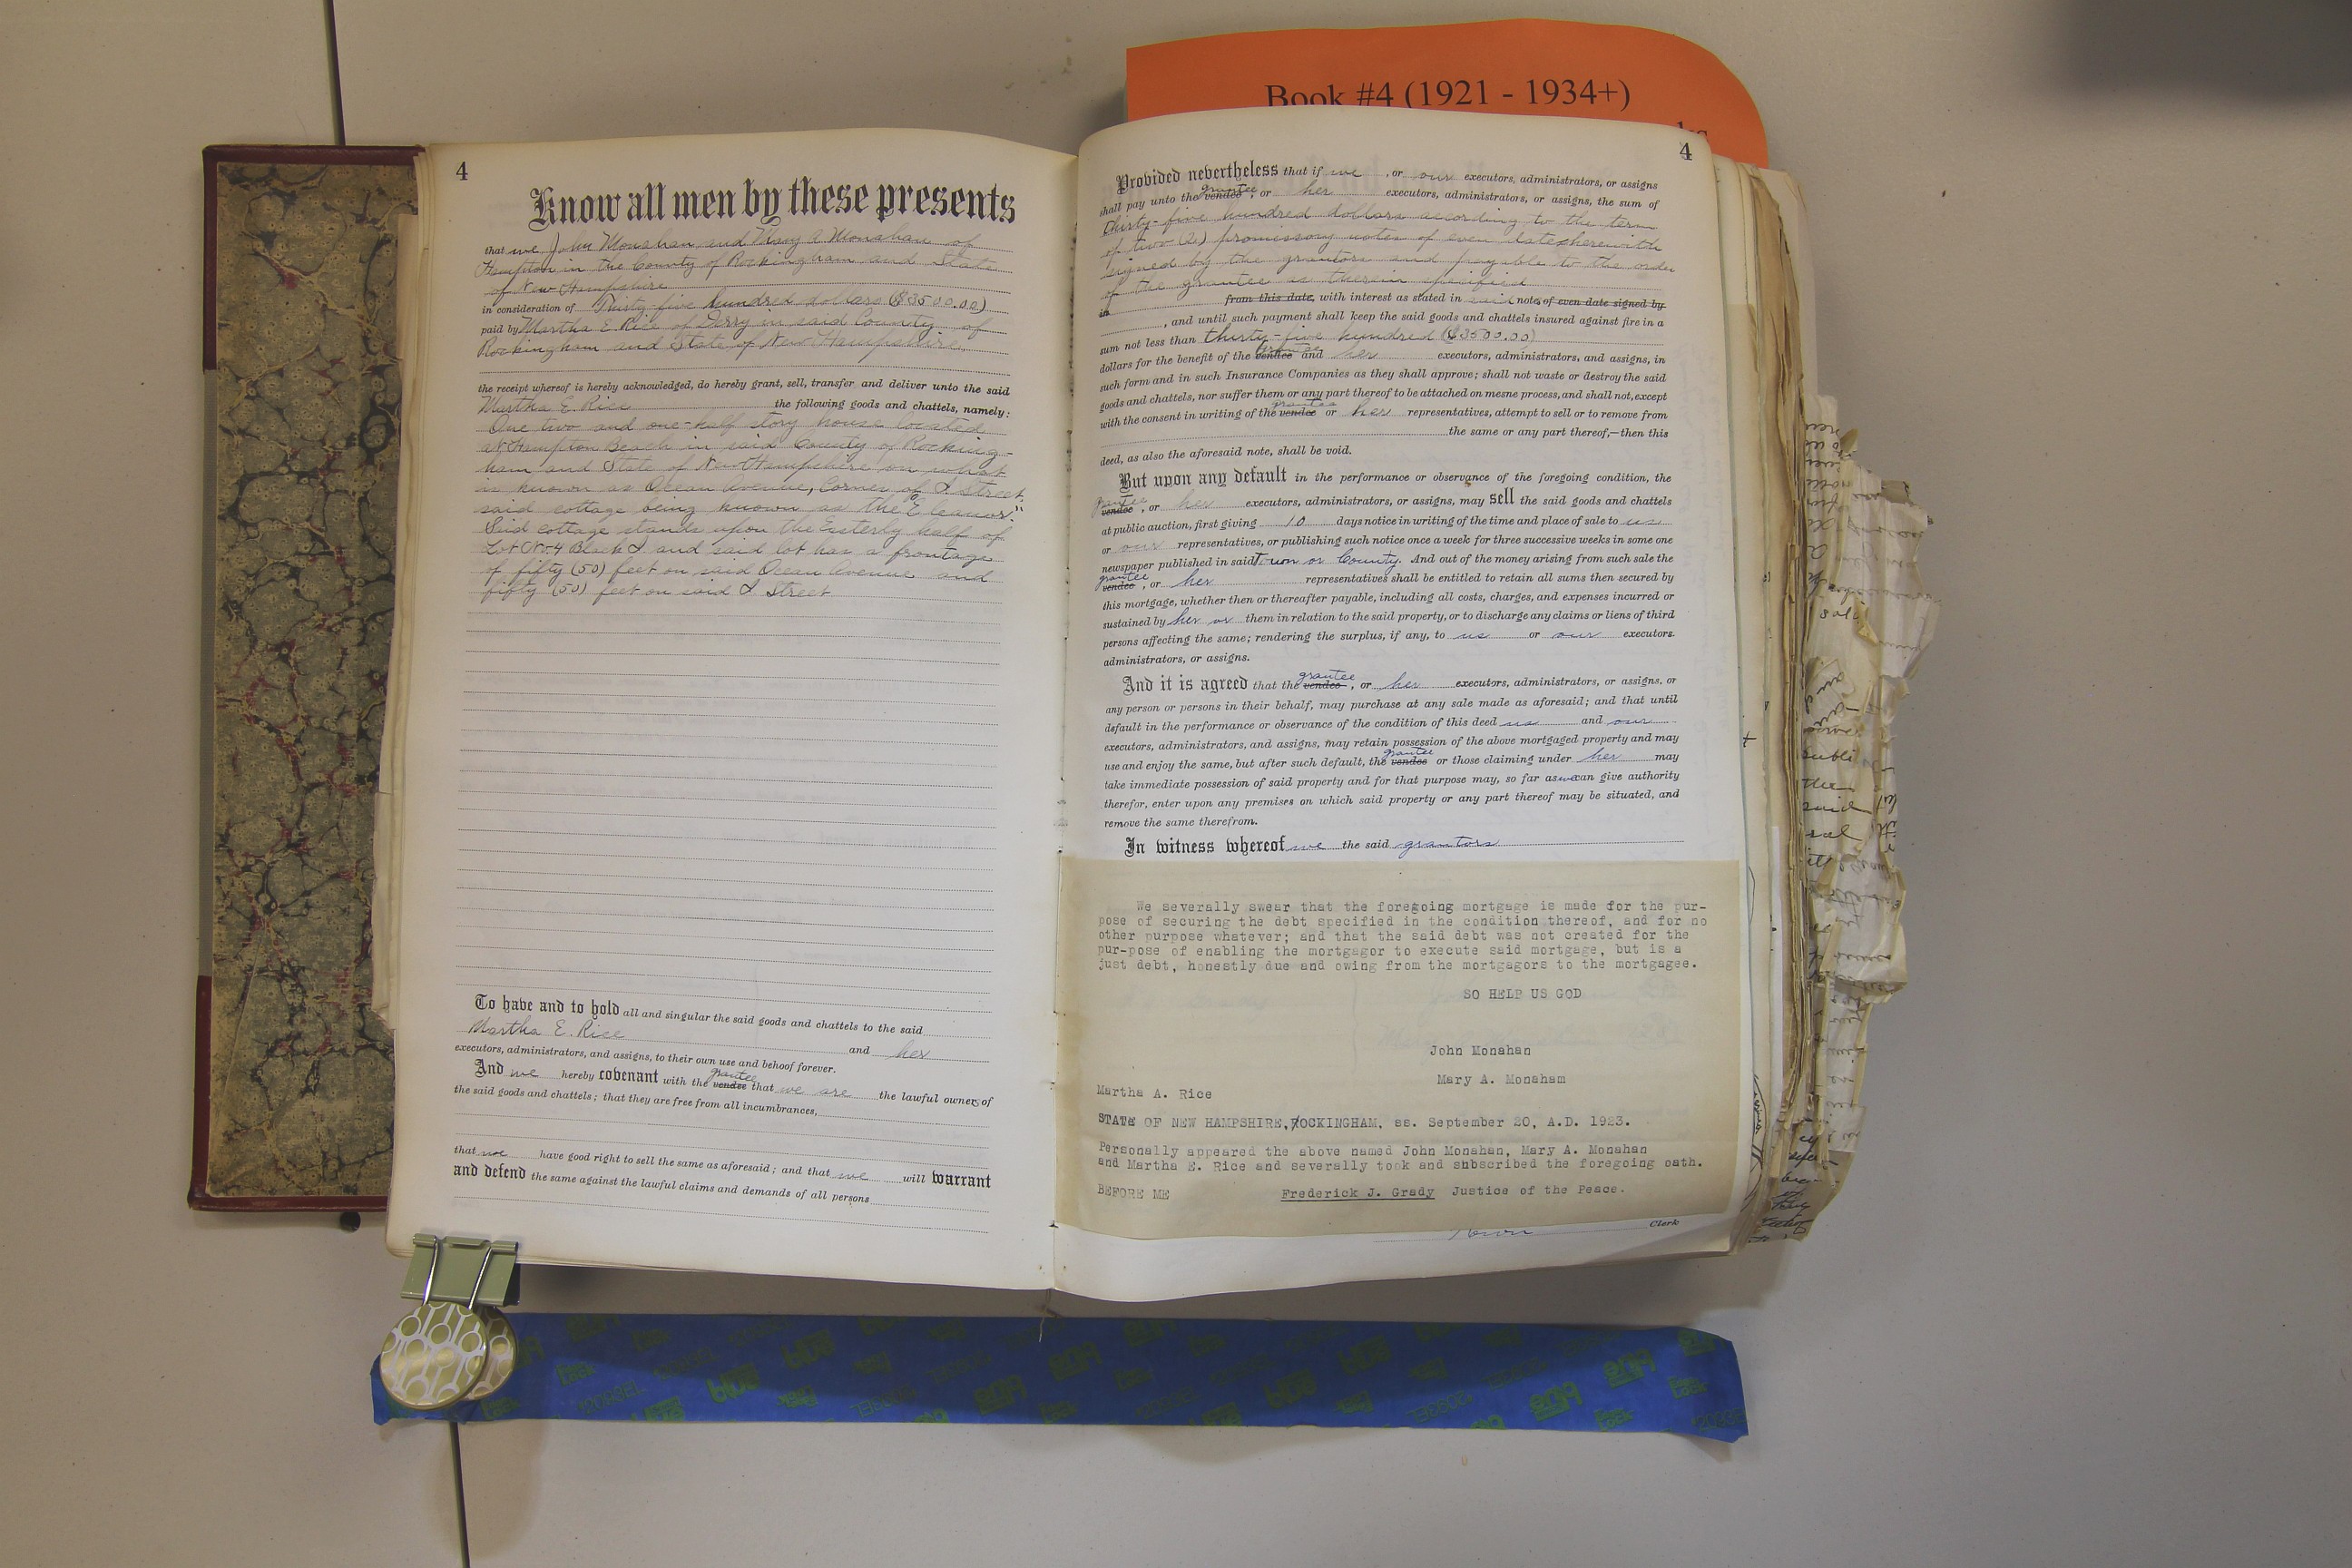 Book #4 (1921 - 1934+)
4
Know all men by these presents
that we John Monahan and Mary A Monahan of
Hampton in the County of Rockingham and State
of New Hampshire
in consideration of Thirty-five hundred dollars ($3500.00)
paid by Martha E Rice of Derry in said County of
Rockingham and State of New Hampshire
the receipt whereof is hereby acknowledged, do hereby grant, sell, transfer and deliver unto the said
Martha E. Rice the following goods and chattels, namely:
One two and one-half story house located
at Hampton Beach in said County of Rocking-
ham and State of New Hampshire on what
is known as Ocean Avenue, Corner of I Street,
said cottage being known as the "Eleanor".
Said cottage stands upon the Easterly half of
Lot No. 4 Block I and said lot has a frontage
of fifty (50) feet on said Ocean Avenue and
fifty (50) feet on said I Street
To have and to hold all and singular the said goods and chattels to the said
Martha E. Rice and her
executors, administrators, and assigns, to their own use and behoof forever.
And we hereby covenant with the vendee grantee that we are the lawful owners of
the said goods and chattels; that they are free from all incumbrances,
that we have good right to sell the same as aforesaid; and that we will warrant
and defend the same against the lawful claims and demands of all persons
4
Provided nevertheless that if we, or our executors, administrators, or assigns
shall pay unto the vendee grantee, or her executors, administrators, or assigns, the sum of
Thirty-five hundred dollars according to the term
of two (2) promissory notes of even date herewith
signed by the grantors and payable to the order
of the grantee as therein specified
from this date, with interest as stated in said notes of even date signed by
in
, and until such payment shall keep the said goods and chattels insured against fire in a
sum not less than thirty-five hundred ($3500.00)
dollars for the benefit of the vendee grantee and her executors, administrators, and assigns, in
such form and in such Insurance Companies as they shall approve; shall not waste or destroy the said
goods and chattels, nor suffer them or any part thereof to be attached on mesne process, and shall not, except
with the consent in writing of the vendee grantee or her representatives, attempt to sell or to remove from
the same or any part thereof,—then this
deed, as also the aforesaid note, shall be void.
But upon any default in the performance or observance of the foregoing condition, the
vendee grantee, or her executors, administrators, or assigns, may sell the said goods and chattels
at public auction, first giving 10 days notice in writing of the time and place of sale to us
or our representatives, or publishing such notice once a week for three successive weeks in some one
newspaper published in said Town or County. And out of the money arising from such sale the
vendee grantee, or her representatives shall be entitled to retain all sums then secured by
this mortgage, whether then or thereafter payable, including all costs, charges, and expenses incurred or
sustained by her or them in relation to the said property, or to discharge any claims or liens of third
persons affecting the same; rendering the surplus, if any, to us or our executors.
administrators, or assigns.
And it is agreed that the vendee grantee, or her executors, administrators, or assigns, or
any person or persons in their behalf, may purchase at any sale made as aforesaid; and that until
default in the performance or observance of the condition of this deed us and our
executors, administrators, and assigns, may retain possession of the above mortgaged property and may
use and enjoy the same, but after such default, the vendee grantee or those claiming under her may
take immediate possession of said property and for that purpose may, so far as we can give authority
therefor, enter upon any premises on which said property or any part thereof may be situated, and
remove the same therefrom.
In witness whereof we the said grantors
We severally swear that the foregoing mortgage is made for the pur-
pose of securing the debt specified in the condition thereof, and for no
other purpose whatever; and that the said debt was not created for the
pur-pose of enabling the mortgagor to execute said mortgage, but is a
just debt, honestly due and owing from the mortgagors to the mortgagee.
SO HELP US GOD
John Monahan
Mary A. Monaham
Martha A. Rice
STATE OF NEW HAMPSHIRE, ROCKINGHAM, ss. September 20, A.D. 1923.
Personally appeared the above named John Monahan, Mary A. Monahan
and Martha E. Rice and severally took and shbscribed the foregoing oath.
BEFORE ME Frederick J. Grady Justice of the Peace.
Town Clerk